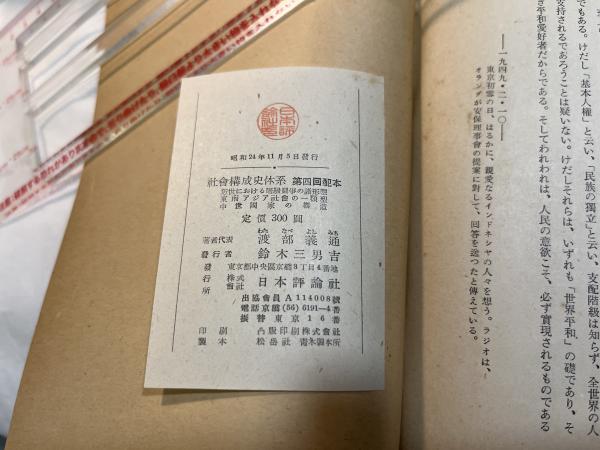 昭和24年11月5日發行
社會構成史体系 第四回配本
東南アジア社會の一類型
中世國家の構造
定價300圓
著者代表 渡部義通
發行者 鈴木三男吉
東京都中央區京橋3丁目4番地
發行所 株式會社 日本評論社
出協會員A114008號
電話京橋(56)6191—4番
振替東京16番
印刷 凸版印刷株式會社
製本 松岳社 青木製本所
でもある。けだし「基本人權」と云い、「民族の獨立」と云い、支配階級は知らず、全世界の人
支持されるであろうことは疑いない。けだしそれらは、いずれも「世界平和」の礎であり、そ
ぎ平和愛好者だからである。そしてわれわれは、人民の意欲こそ、必ず實現されるものである
——一九四九・二・一〇——
東京初雪の日、はるかに、親愛なるインドネシヤの人々を想う。ラジオは、
オランダが安保理事會の提案に對して、回答を送つたと傳えている。